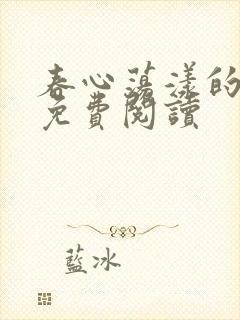 春心蕩漾的
免費閱讀
藍冰